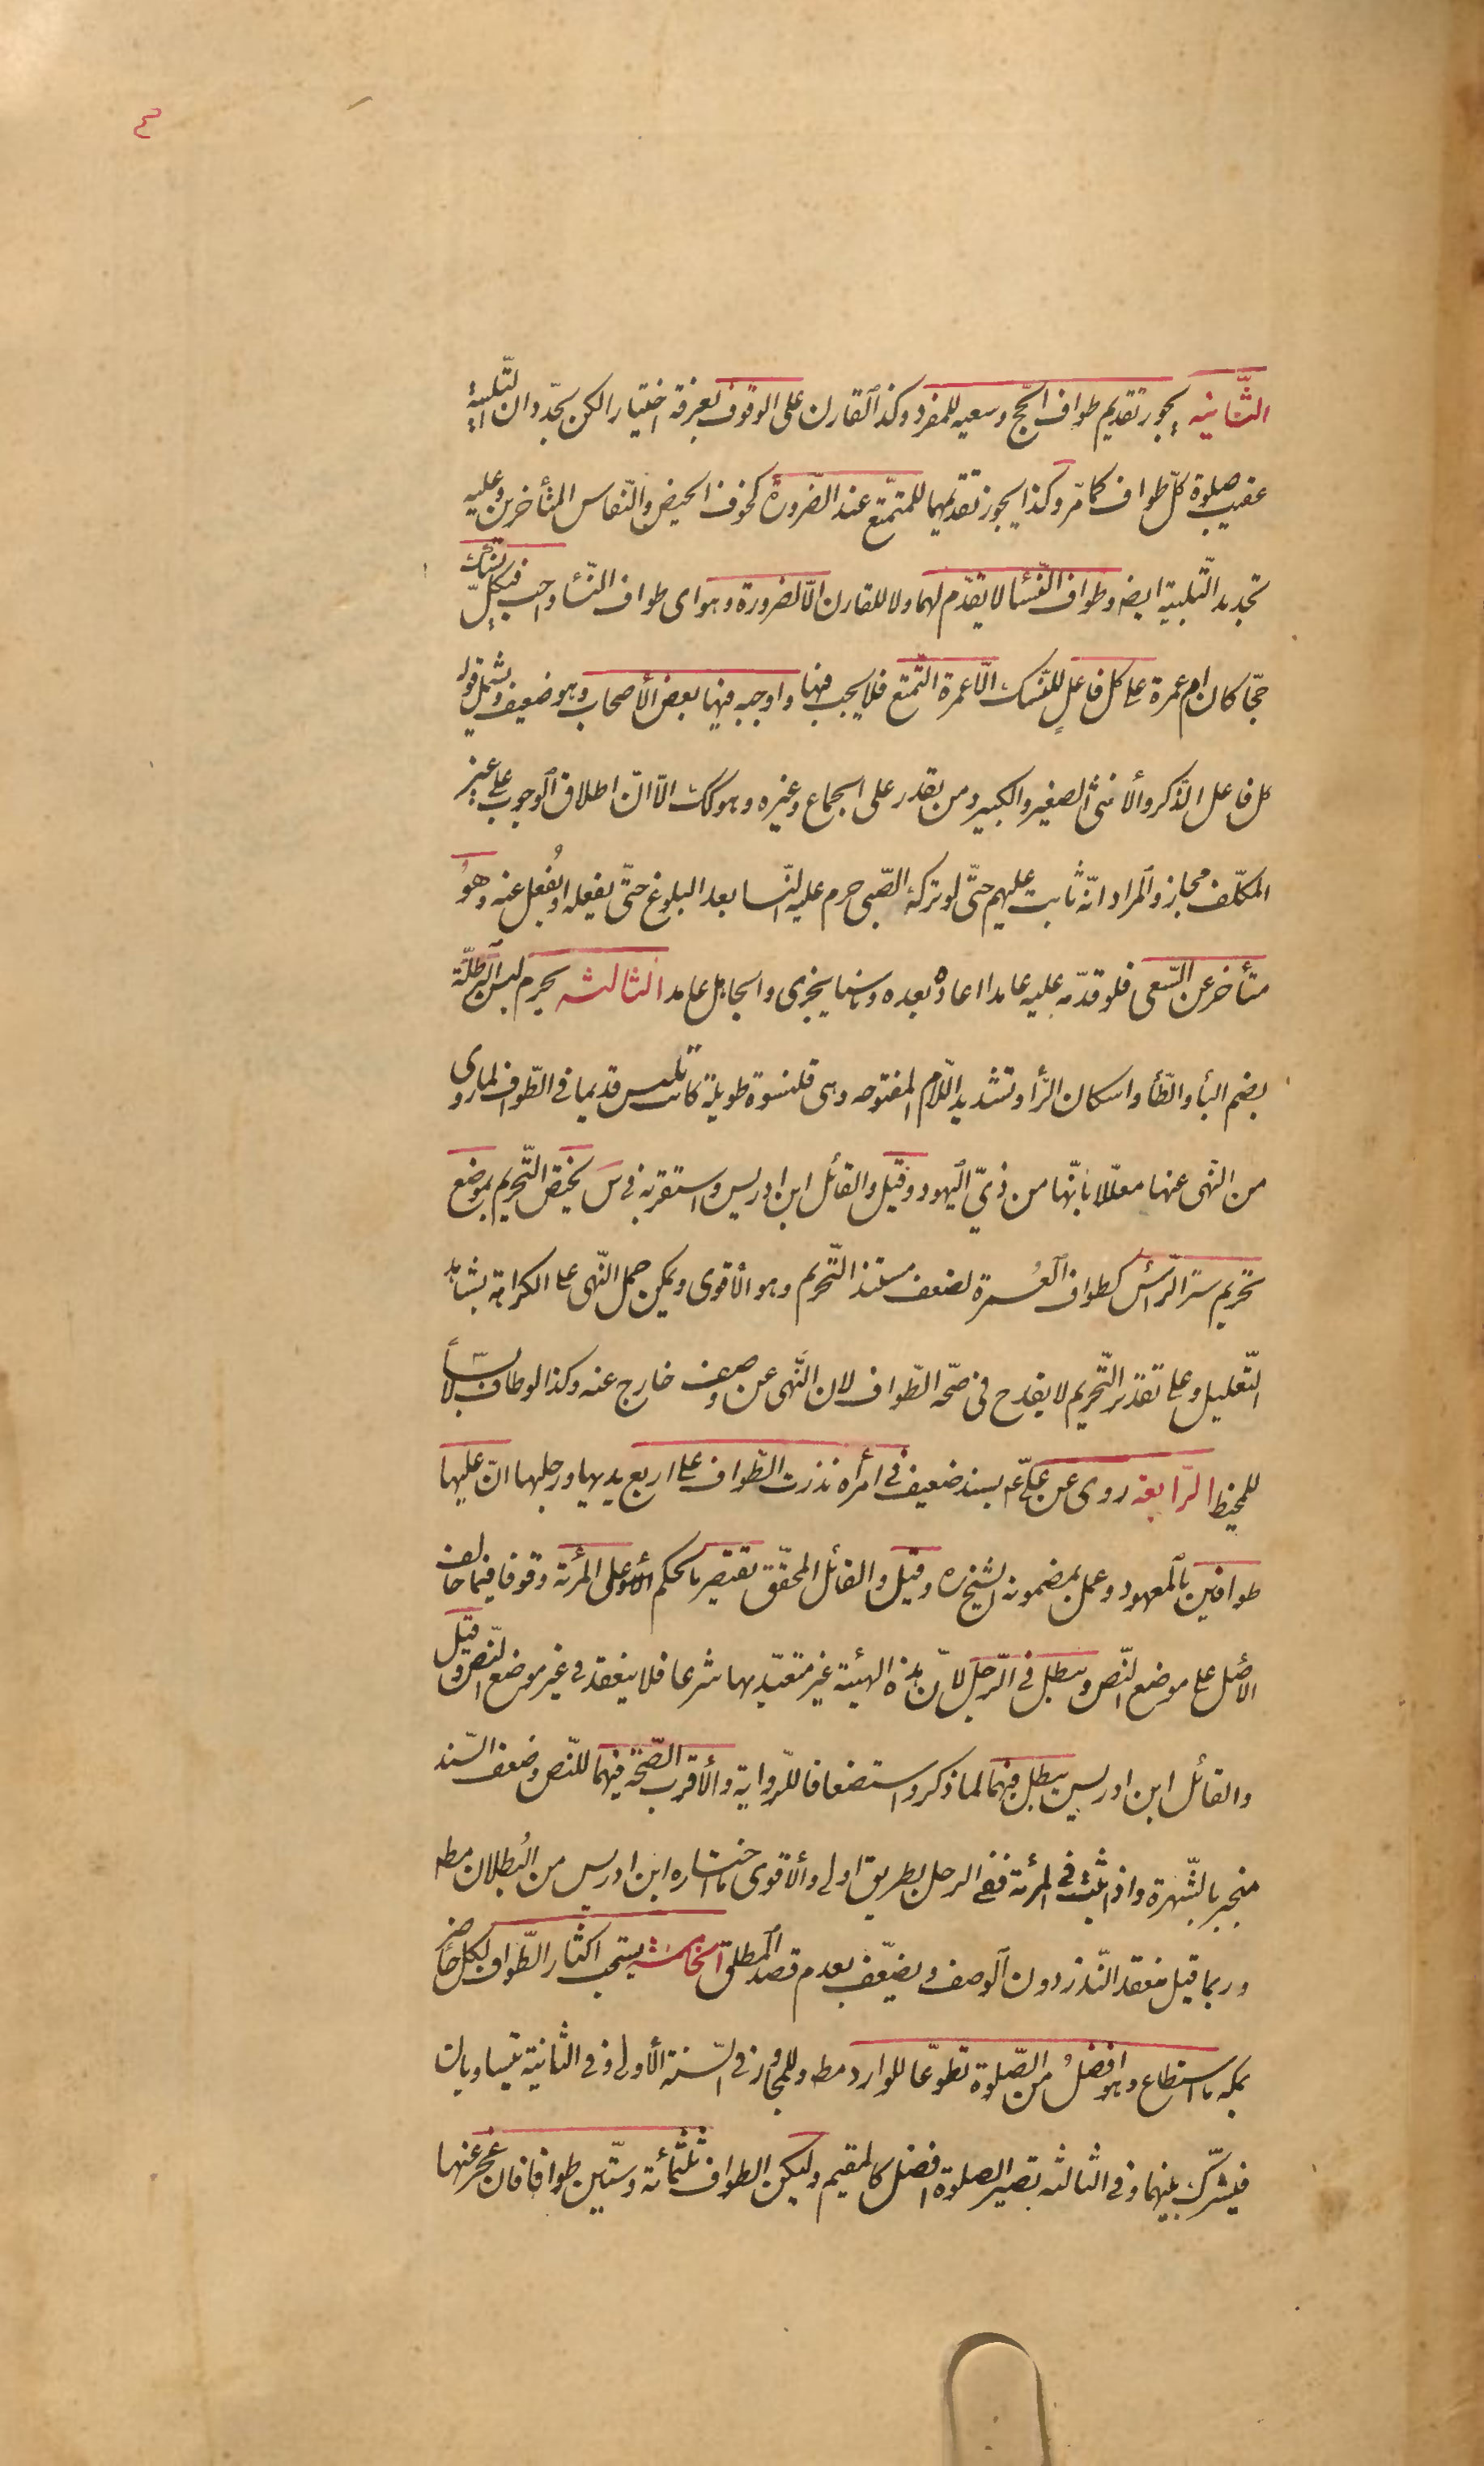 ٣
الثّانيه يجوز تقديم طواف الحجّ وسعيه للمفرد وكذا القارن على الوقوف بعرفة اختيارا لكن يجدّدان التّلبية
عقيب صلوة كلّ طواف كما مرّ وكذا يجوز تقديمهما للمتمتّع عند الضّرورة كخوف الحيض والنّفاس المتأخرين وعليه
تجديد التّلبية ايضا وطواف النّسا لا يقدّم لهما ولا للقارن الّا لضرورة وهو اى طواف النّساء واجب فى كلّ نسك
حجّا كان ام عمرة على كل فاعلٍ للنّسك الّا عمرة التّمتع فلا يجب فيها واوجبه فيها بعض الأصحاب وهو ضعيف ويشمل قوله
كل فاعل الذّكر والأنثى الصغير والكبير ومن يقدر على الجماع وغيره وهو كك الّا انّ اطلاق الوجوب على غير
المكلّف مجاز والمراد انّه ثابت عليهم حتّى لو تركه الصّبى حرم عليه النّسا بعد البلوغ حتّى يفعله او يُفعل عنه وهوُ
متأخر عن السّعى فلو قدّمه عليه عامدا اعاده بعده وناسيا يجزى والجاهل عامد الثالثه يحرم لبس البرطلّة
بضم البأ والطّأ واسكان الرّأ وتشديد اللّام المفتوحه وهى قلنسوة طويلة كانت تلبس قديما فى الطّواف لما روى
من النّهى عنها معلّلا بأنّها من زيّ اليهود وقيل والقائل ابن ادريس واستقربه فى س يختص التّحريم بموضع
تحريم ستر الرّأس كطواف العُمرة لضعف مستند التّحريم وهو الأقوى ويمكن حمل النّهى على الكراهة بشاهد
التّعليل وعلى تقدير التّحريم لا يقدح فى صحّة الطّواف لان النّهى عن وصف خارج عنه وكذا لو طاف لابسا
للمخيط الرّابعة روى عن علىّ ع بسند ضعيف فى امرأة نذرت الطّواف على اربع يديها ورجليها انّ عليها
طوافين بالمعهود وعمل بمضمونه الشيخ ره وقيل والقائل المحقّق يقتصر بالحكم على المرئة وقوفا فيما خالف
الأصل على موضع النّص ويبطل فى الرّجل لأنّ هذه الهيئة غير متعبّد بها شرعا فلا ينعقد فى غير موضع النّص وقيل
والقائل ابن ادريس يبطل فيهما لما ذكر واستضعافا للرّواية والأقرب الصّحّة فيهما للنّص وضعف السّند
منجبر بالشّهرة واذا ثبت فى المرئة ففى الرجل بطريق اولى والأقوى ما اختاره ابن ادريس من البُطلان مطه
وربما قيل ينعقد النّذر دون الوصف ويضعّف بعدم قصد المطلق الخامسة يستحب اكثار الطّواف لكلّ حاضر
بمكه ما استطاع وهو افضلُ من الصّلوة تطوّعا للوارد مطه وللمجاور فى السّنة الأولى وفى الثانية يتساويان
فيشرّك بينهما وفى الثالثه تصير الصلوة افضل كالمقيم وليكن الطواف ثلثمائة وستّين طوافا فان عجز عنها